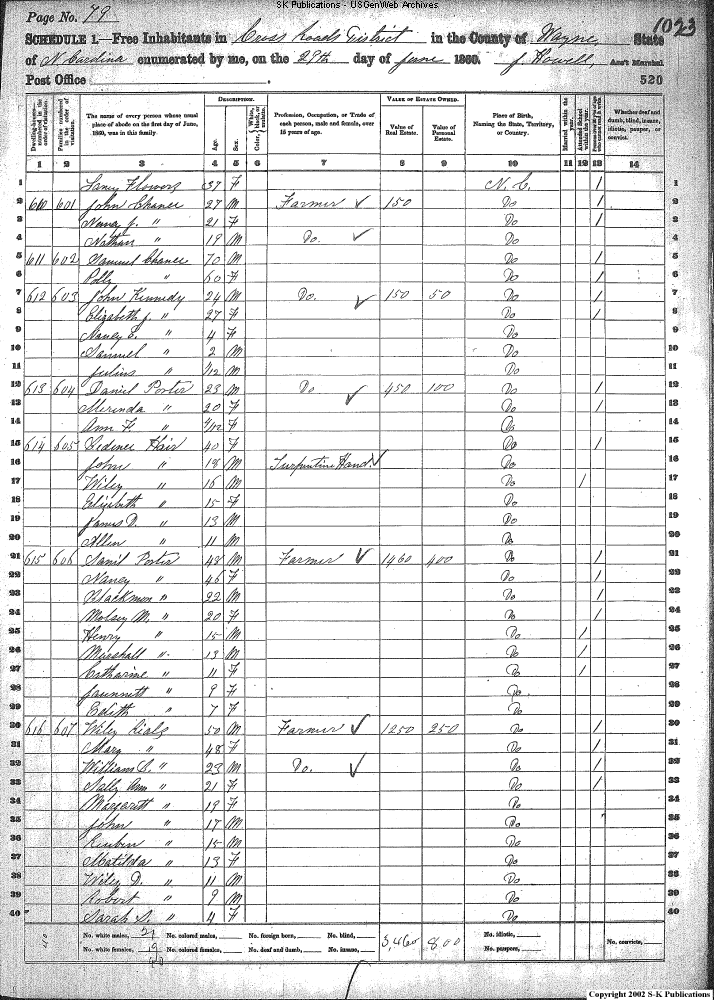 SK Publications - USGenWeb Archives
Page No. 79
1023
SCHEDULE 1.—Free Inhabitants in Cross Roads District in the County of Wayne State
of N Carolina enumerated by me, on the 29th day of June 1860. J Howell, Ass't Marshal
Post Office 520
Dwelling-houses numbered in the order of visitation.
Families numbered in the order of visitation.
The name of every person whose usual place of abode on the first day of June, 1860, was in this family
DESCRIPTION.
Age.
Sex.
Color, White, black, or mulatto.
Profession, Occupation, or Trade of each person, male and female, over 15 years of age.
VALUE OF ESTATE OWNED.
Value of Real Estate.
Value of Personal Estate.
Place of Birth, Naming the State, Territory, or Country.
Married within the year.
Attended School within the year.
Whether deaf and dumb, blind, insane, idiotic, pauper, or convict.
1 2 3 4 5 6 7 8 9 10 11 12 13 14
1 Flowers 37 F N. C. / 1
2 610 601 John Chance 27 M Farmer ✓ 150 Do / 2
3 J. " 21 F Do / 3
4 Nathan " 19 M Do. ✓ Do 4
5 611 602 Samuel Chance 70 M Do / 5
6 Polly " 60 F Do / 6
7 612 603 John Kennedy 24 M Do. ✓ 150 50 Do / 7
8 Elizabeth J. " 27 F Do / 8
9 Nancy E. " 4 F Do 9
10 Samuel " 2 M Do 10
11 Julius " /12 M Do 11
12 613 604 Daniel Porter 23 M Do ✓ 450 100 Do / 12
13 Merinda " 20 F Do / 13
14 Ann F. " /12 F Do 14
15 614 605 Hair 40 F Do / 15
16 John " 18 M Turpentine Hand ✓ Do 16
17 Wiley " 16 M Do / 17
18 Elizibeth " 15 F Do 18
19 James D. " 13 M Do 19
20 Allen " 11 M Do 20
21 615 606 Porter 48 M Farmer ✓ 1460 400 Do / 21
22 Nancy " 46 F Do / 22
23 Blackmon " 22 M Do / 23
24 Molsey M. " 20 F Do / 24
25 Henry " 15 M Do / 25
26 Marshall " 13 M Do / 26
27 Catharine " 11 F Do / 27
28 " 9 F Do 28
29 Edith " 7 F Do 29
30 616 607 Wiley 50 M Farmer ✓ 1250 250 Do / 30
31 Mary " 48 F Do / 31
32 William " 23 M Do. ✓ Do / 32
33 Sally Ann " 21 F Do / 33
34 Margarett " 19 F Do 34
35 John " 17 M Do 35
36 Reubin " 15 M Do 36
37 Matilda " 13 F Do 37
38 Wiley D. " 11 M Do 38
39 Robert " 9 M Do 39
40 Sarah S. " 4 F Do 40
40 No. white males, 21 No. colored males, No. foreign born, No. blind, 3,460 800 No. idiotic,
No. white females, 19 No. colored females, No. deaf and dumb, No. insane, No. paupers, No. convicts,
40
Copyright 2002 S-K Publications